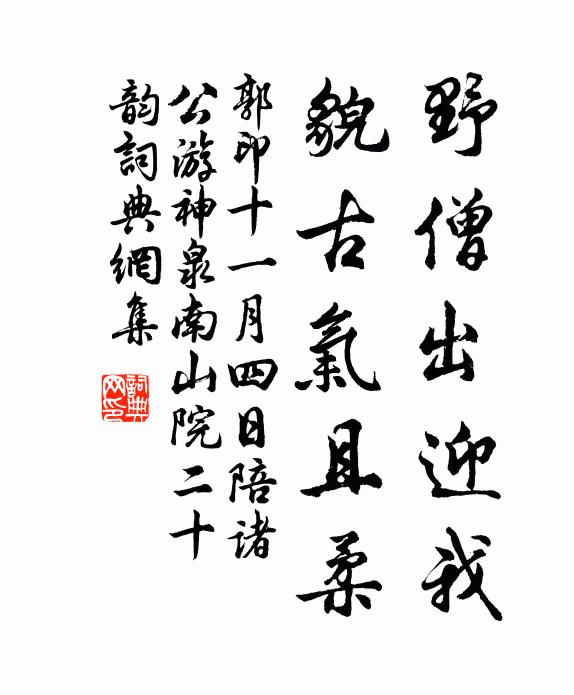 野僧出迎我
貌古氣且柔
郭印十一月四日陪諸
公游神泉南山院二十
韵詞典網集
詞典网印